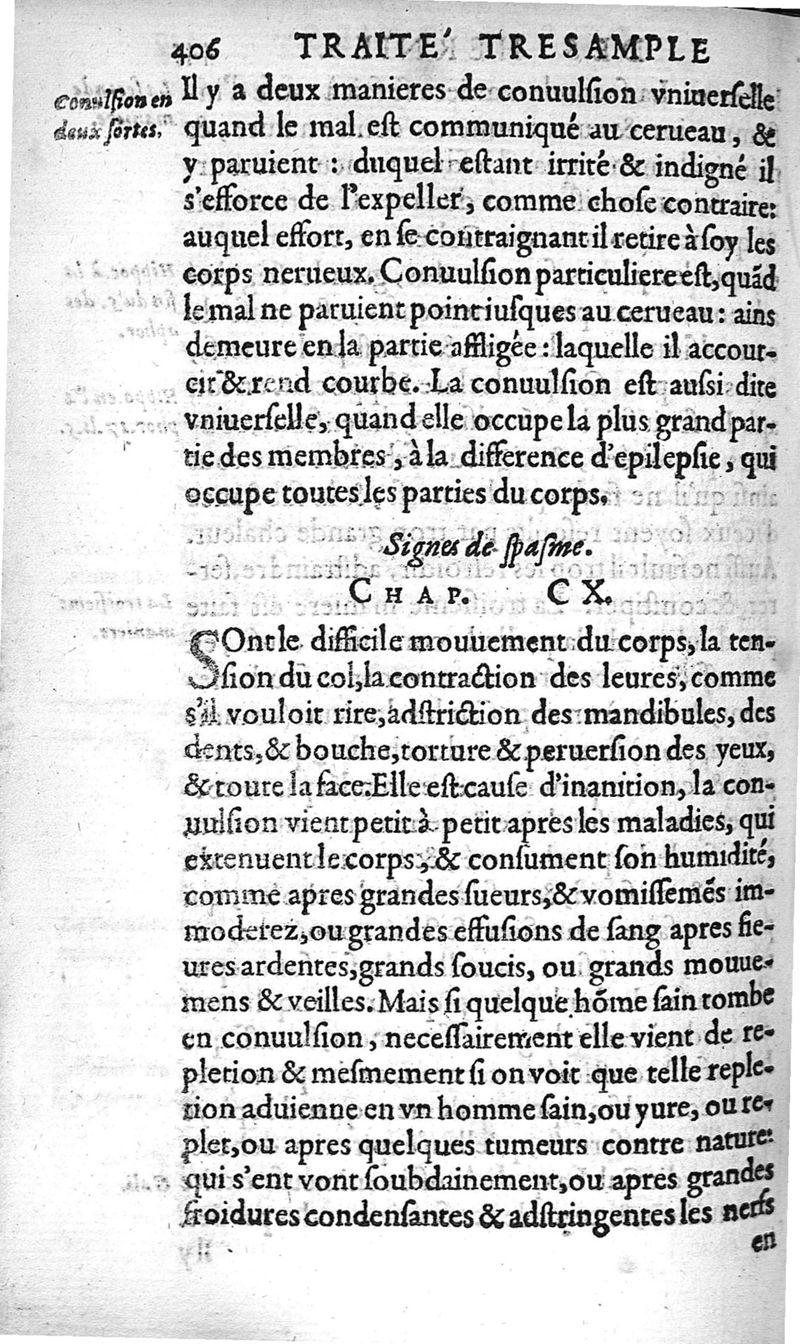 406 TRAITE' TRESAMPLE
Conuulſion en
deux ſortes.
Il y a deux manieres de conuulſion vniuerſelle
quand le mal eſt communiqué au cerueau, &
y paruient : duquel eſtant irrité & indigné il
s'efforce de l'expeller, comme choſe contraire:
auquel effort, en ſe contraignant il retire à ſoy les
corps nerueux. Conuulſion particuliere eſt, quãd
le mal ne paruient point iuſques au cerueau : ains
demeure en la partie affligée : laquelle il accour-
cit & rend courbe. La conuulſion eſt auſsi dite
vniuerſelle, quand elle occupe la plus grand par-
tie des membres, à la difference d'epilepſie, qui
occupe toutes les parties du corps.
Signes de ſpaſme.
CHAP. CX.
SOnt le difficile mouuement du corps, la ten-
ſion du col, la contraction des leures, comme
s'il vouloit rire, adſtriction des mandibules, des
dents, & bouche, torture & peruerſion des yeux,
& toute la face. Elle eſt cauſe d'inanition, la con-
uulſion vient petit à petit apres les maladies, qui
extenuent le corps, & conſument ſon humidité,
comme apres grandes ſueurs, & vomiſſemẽs im-
moderez, ou grandes effuſions de ſang apres fie-
ures ardentes, grands ſoucis, ou grands mouue-
mens & veilles. Mais ſi quelque hõme ſain tombe
en conuulſion, neceſſairement elle vient de re-
pletion & meſmement ſi on voit que telle reple-
tion aduienne en vn homme ſain, ou yure, ou re-
plet, ou apres quelques tumeurs contre nature:
qui s'ent vont ſoubdainement, ou apres grandes
froidures condenſantes & adſtringentes les nerfs
en